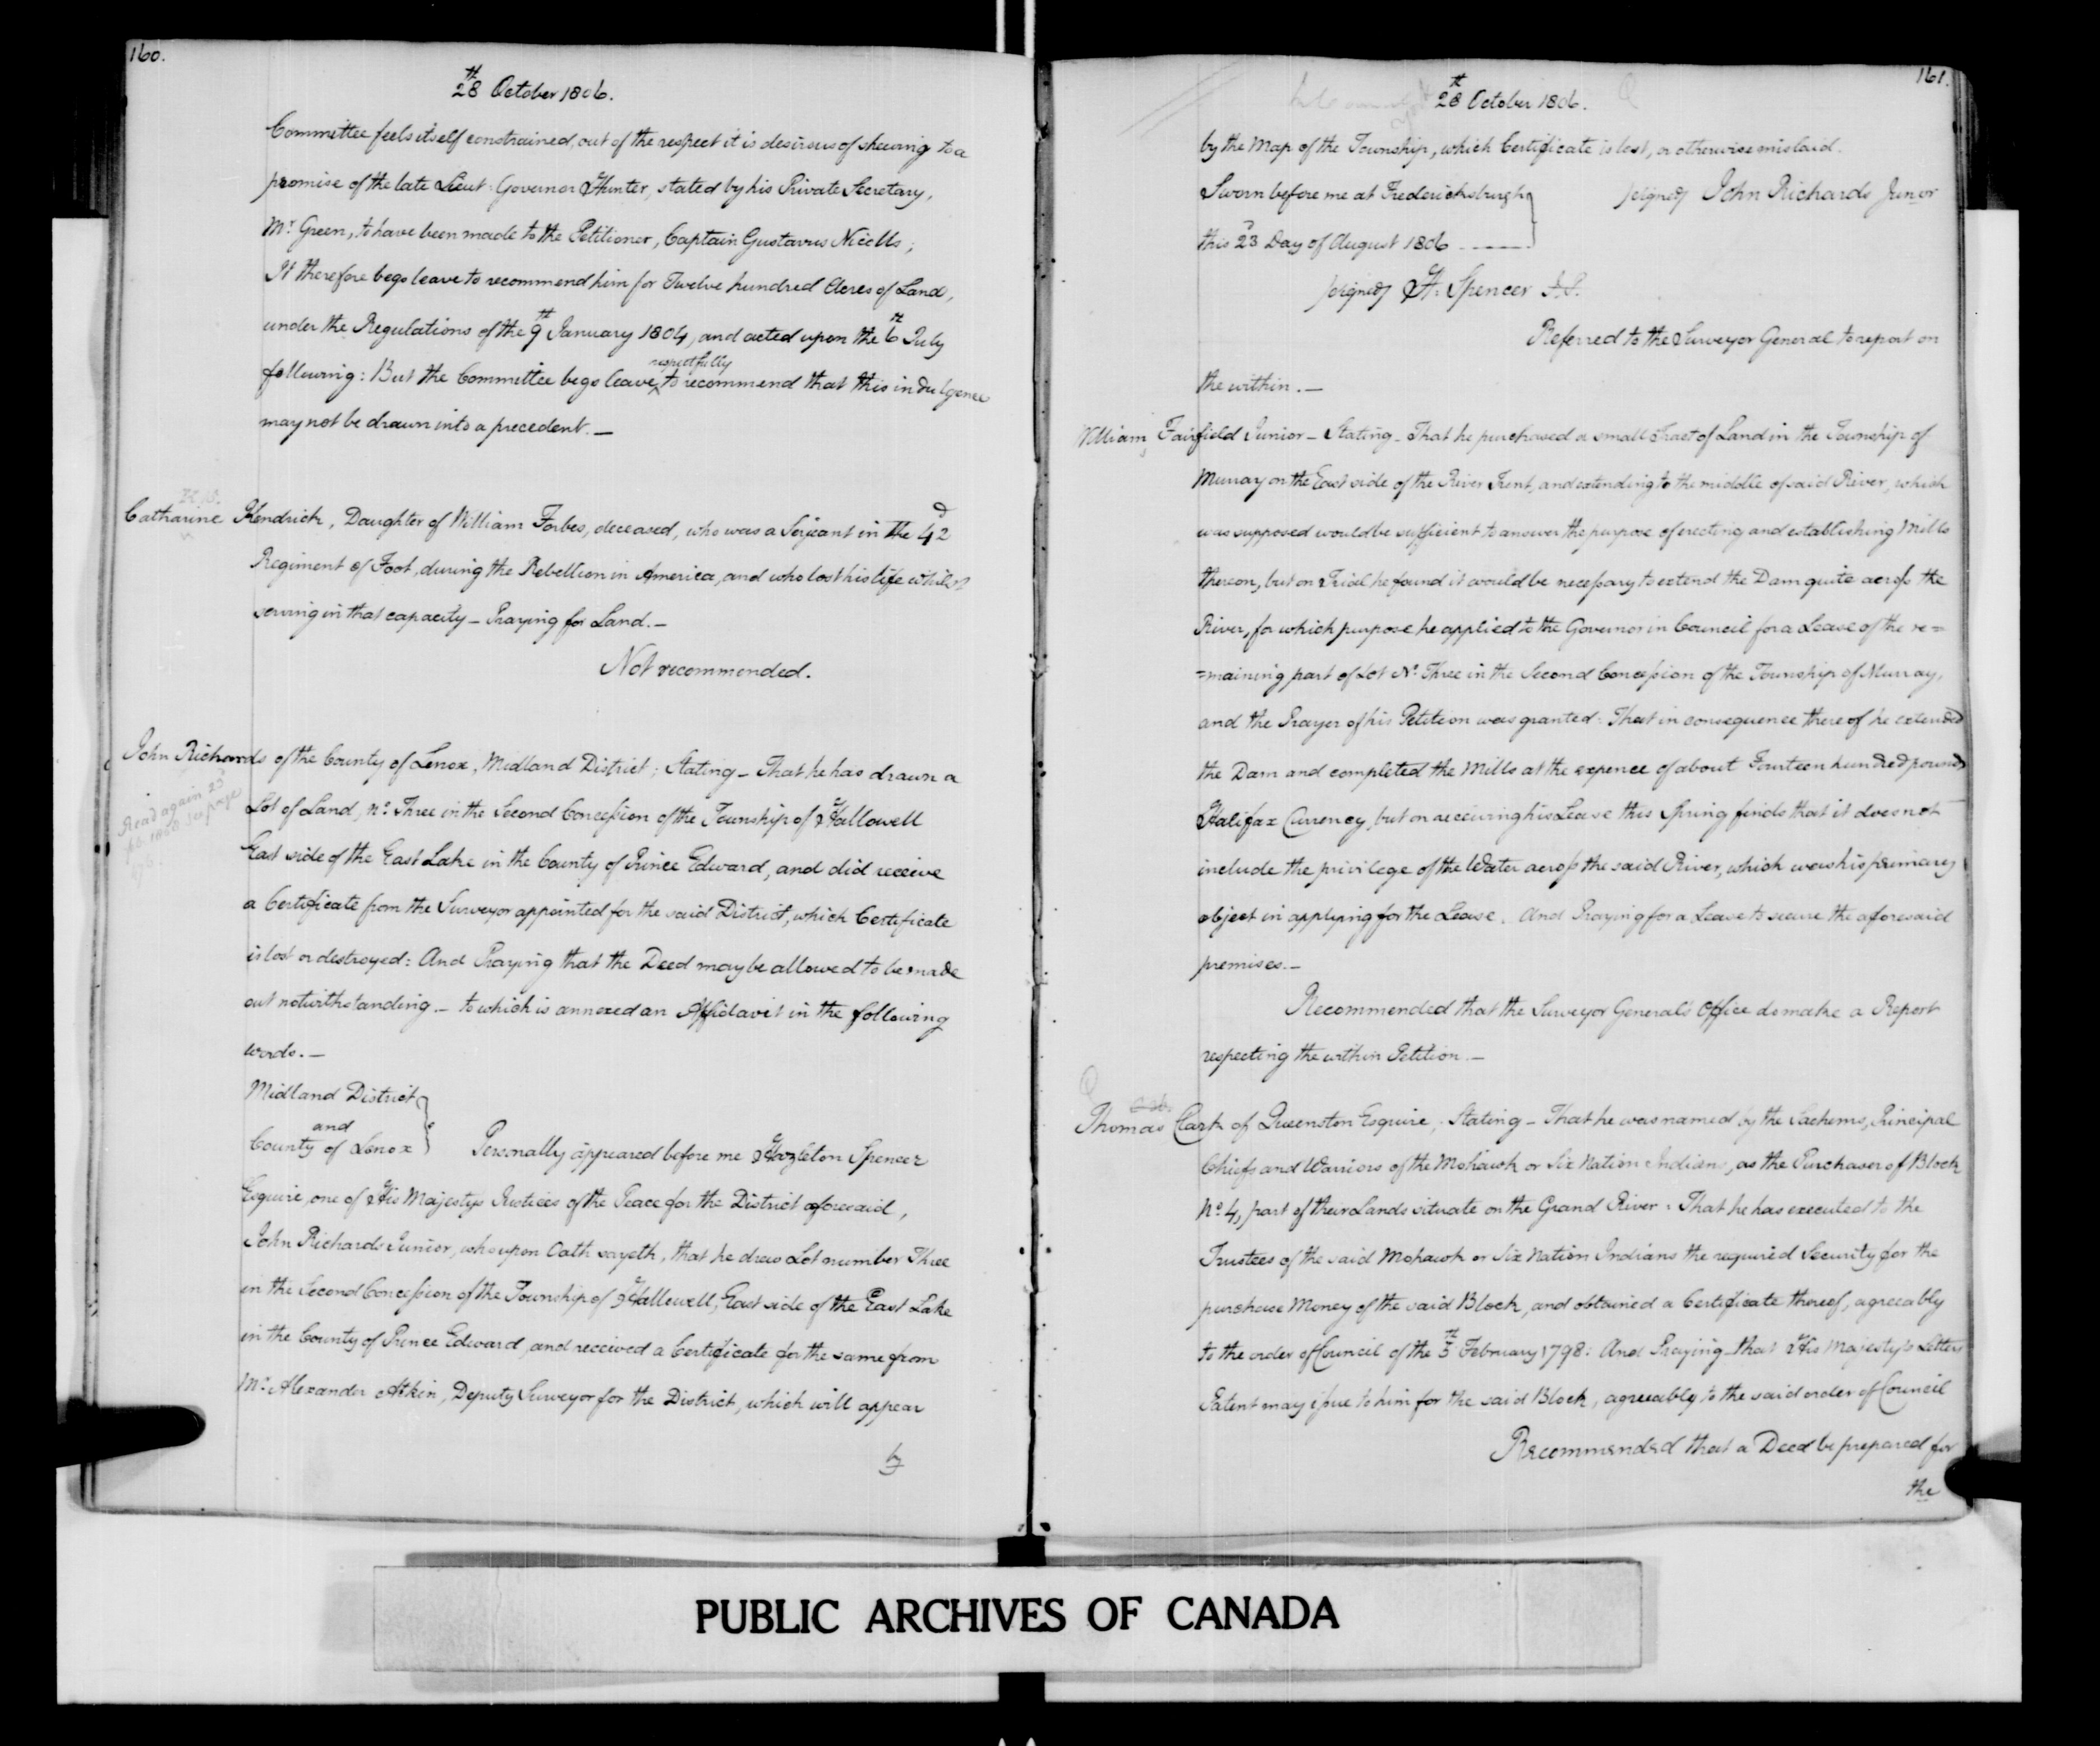 160.
28th October 1806.
Committee feels itself constrained, out of the respect it is desirous of shewing to a
promise of the late Lieut: Governor Hunter, stated by his Private Secretary,
Mr Green, to have been made to the Petitioner, Captain Gustavus Nicolls;
It therefore begs leave to recommend him for Twelve hundred Acres of Land,
under the Regulations of the 9th January 1804, and acted upon the 6th July
following: But the Committee begs leave ^ respectfully to recommend that this indulgence
may not be drawn into a precedent. —
Catharine Kendrick, Daughter of William Forbes, deceased, who was a Serjeant in the 42d
Regiment of Foot, during the Rebellion in America, and who lost his life whilst
serving in that capacity — Praying for Land. —
Not recommended.
John Richards of the County of Lenox, Midland District; Stating — That he has drawn a
Lot of Land, No. Three in the Second Concession of the Township of Hallowell
East side of the East Lake in the County of Prince Edward, and did receive
a Certificate from the Surveyor appointed for the said District, which Certificate
is lost or destroyed: And Praying that the Deed may be allowed to be made
out notwithstanding. — to which is annexed an Affidavit in the following
words. —
Read again 23d
feb. 1808 see page
Midland District
and
County of Lenox } Personally appeared before me Hazleton Spencer
Esquire, one of His Majestys Justices of the Peace for the District aforesaid,
John Richards Junior, who upon Oath sayeth, that he drew Lot number Three
in the Second Concession of the Township of Hallowell, East side of the East Lake
in the County of Prince Edward, and received a Certificate for the same from
Mr. Alexander Atkin, Deputy Surveyor for the District, which will appear
by
161.
28th October 1806.
by the Map of the Township, which Certificate is lost, or otherwise mislaid.
Sworn before me at Fredericksburgh } signed John Richards Junior
this 23d Day of August 1806 ———
signed H. Spencer J.P.
Referred to the Surveyor General to report on
the within. —
William Fairfield Junior — Stating — That he purchased a small Tract of Land in the Township of
Murray on the East side of the River Trent, and extending to the middle of said River, which
was supposed would be sufficient to answer the purpose of erecting and establishing Mills
thereon, but on Trial he found it would be necessary to extend the Dam quite across the
River, for which purpose he applied to the Governor in Council for a Lease of the re=
=maining part of Lot No. Three in the Second Concession of the Township of Murray,
and the Prayer of his Petition was granted: That in consequence thereof he extended
the Dam and completed the Mills at the expence of about Fourteen hundred pounds
Halifax Currency, but on receiving his Lease this Spring finds that it does not
include the privilege of the Water across the said River, which was his primary
object in applying for the Lease. And Praying for a Lease to secure the aforesaid
premises. —
Recommended that the Surveyor General's Office do make a Report
respecting the within Petition. —
Thomas Clark of Queenston Esquire; Stating — That he was named by the Sachems, Principal
Chiefs and Warriors of the Mohawk or Six Nation Indians, as the Purchaser of Block
No. 4, part of their Lands situate on the Grand River: That he has executed to the
Trustees of the said Mohawk or Six Nation Indians the required Security for the
purchase Money of the said Block, and obtained a Certificate thereof, agreeably
to the order of Council of the 5th February 1798: And Praying — that His Majesty's Letters
Patent may issue to him for the said Block, agreeably to the said order of Council
Recommended that a Deed be prepared for
the
PUBLIC ARCHIVES OF CANADA